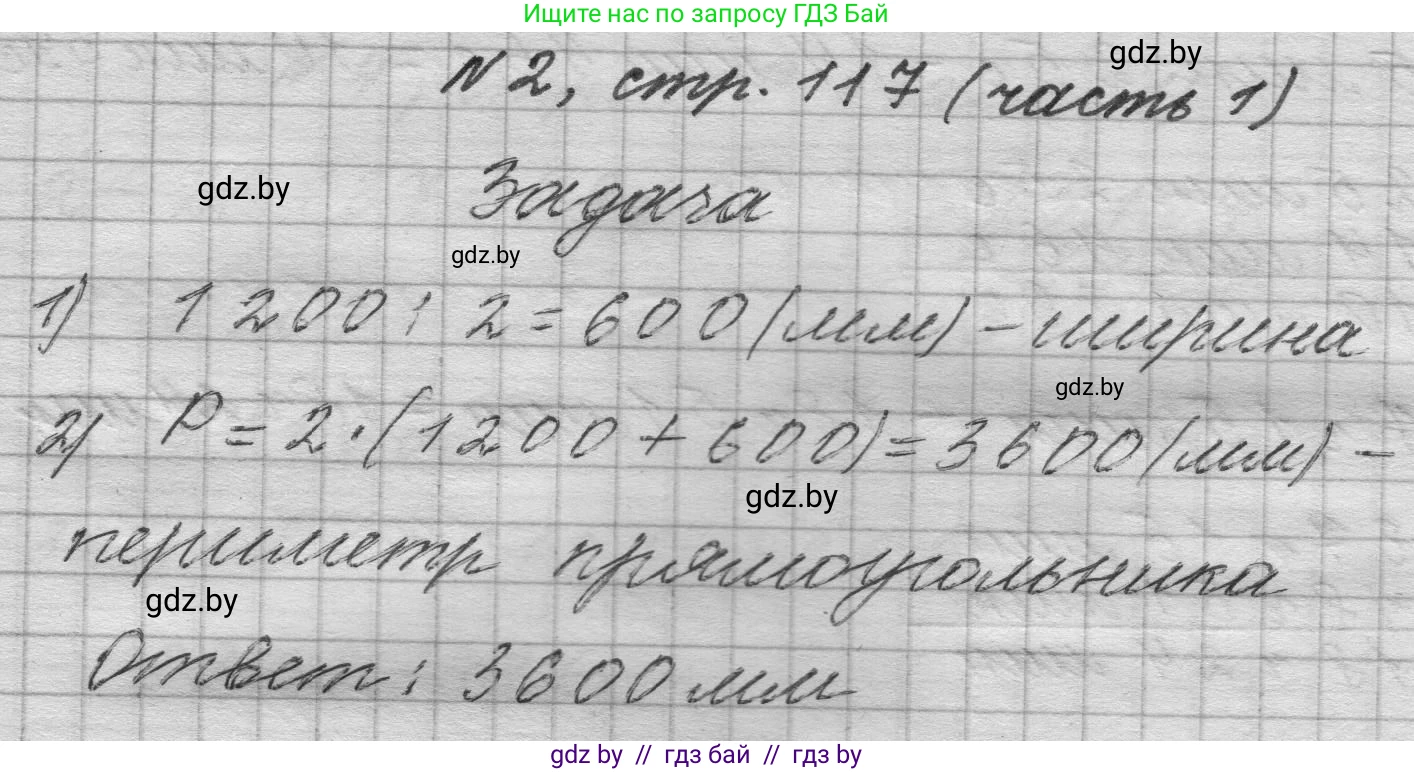 Ищите нас по запросу ГДЗ Бай
gdz.by
N2, стр. 117 (часть 1)
gdz.by
Задача
gdz.by
1) 1200 : 2 = 600 (мм) - ширина
gdz.by
2) P = 2 · (1200 + 600) = 3600 (мм) -
gdz.by
периметр прямоугольника
gdz.by
Ответ: 3600 мм
gdz by // гдз бай // гдз by